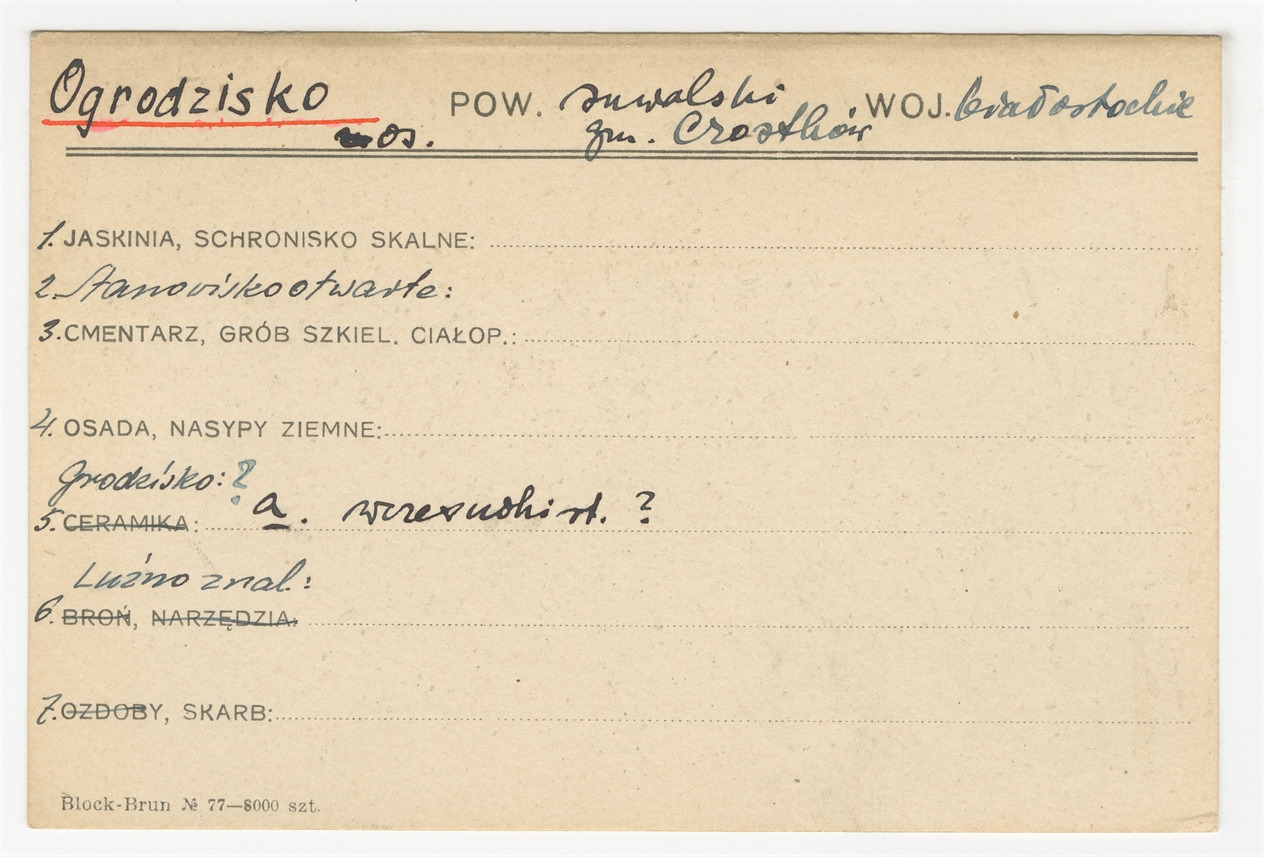 Ogrodzisko POW. suwalski WOJ. białostockie
os. gm. Czostków
1. JASKINIA, SCHRONISKO SKALNE:
2. Stanowisko otwarte:
3. CMENTARZ, GRÓB SZKIEL. CIAŁOP.:
4. OSADA, NASYPY ZIEMNE:
Grodzisko: ?
5. CERAMIKA: a. wczesnohist. ?
Luźno znal.:
6. BROŃ, NARZĘDZIA:
7. OZDOBY, SKARB:
Block-Brun № 77—8000 szt.